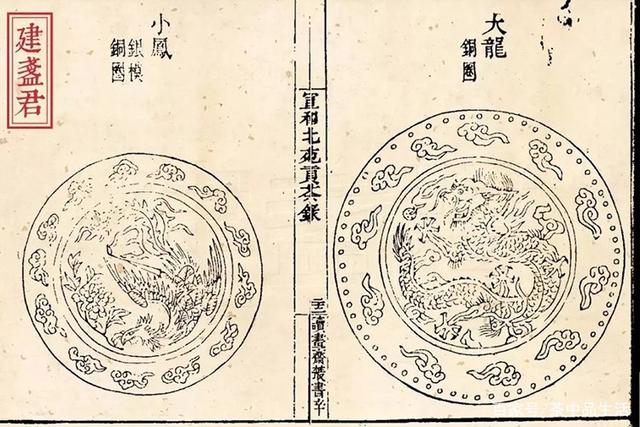 大龍
銅圈
宣和北苑貢茶錄
讀畫齋叢書辛
小鳳
銀模
銅圈
建盞君